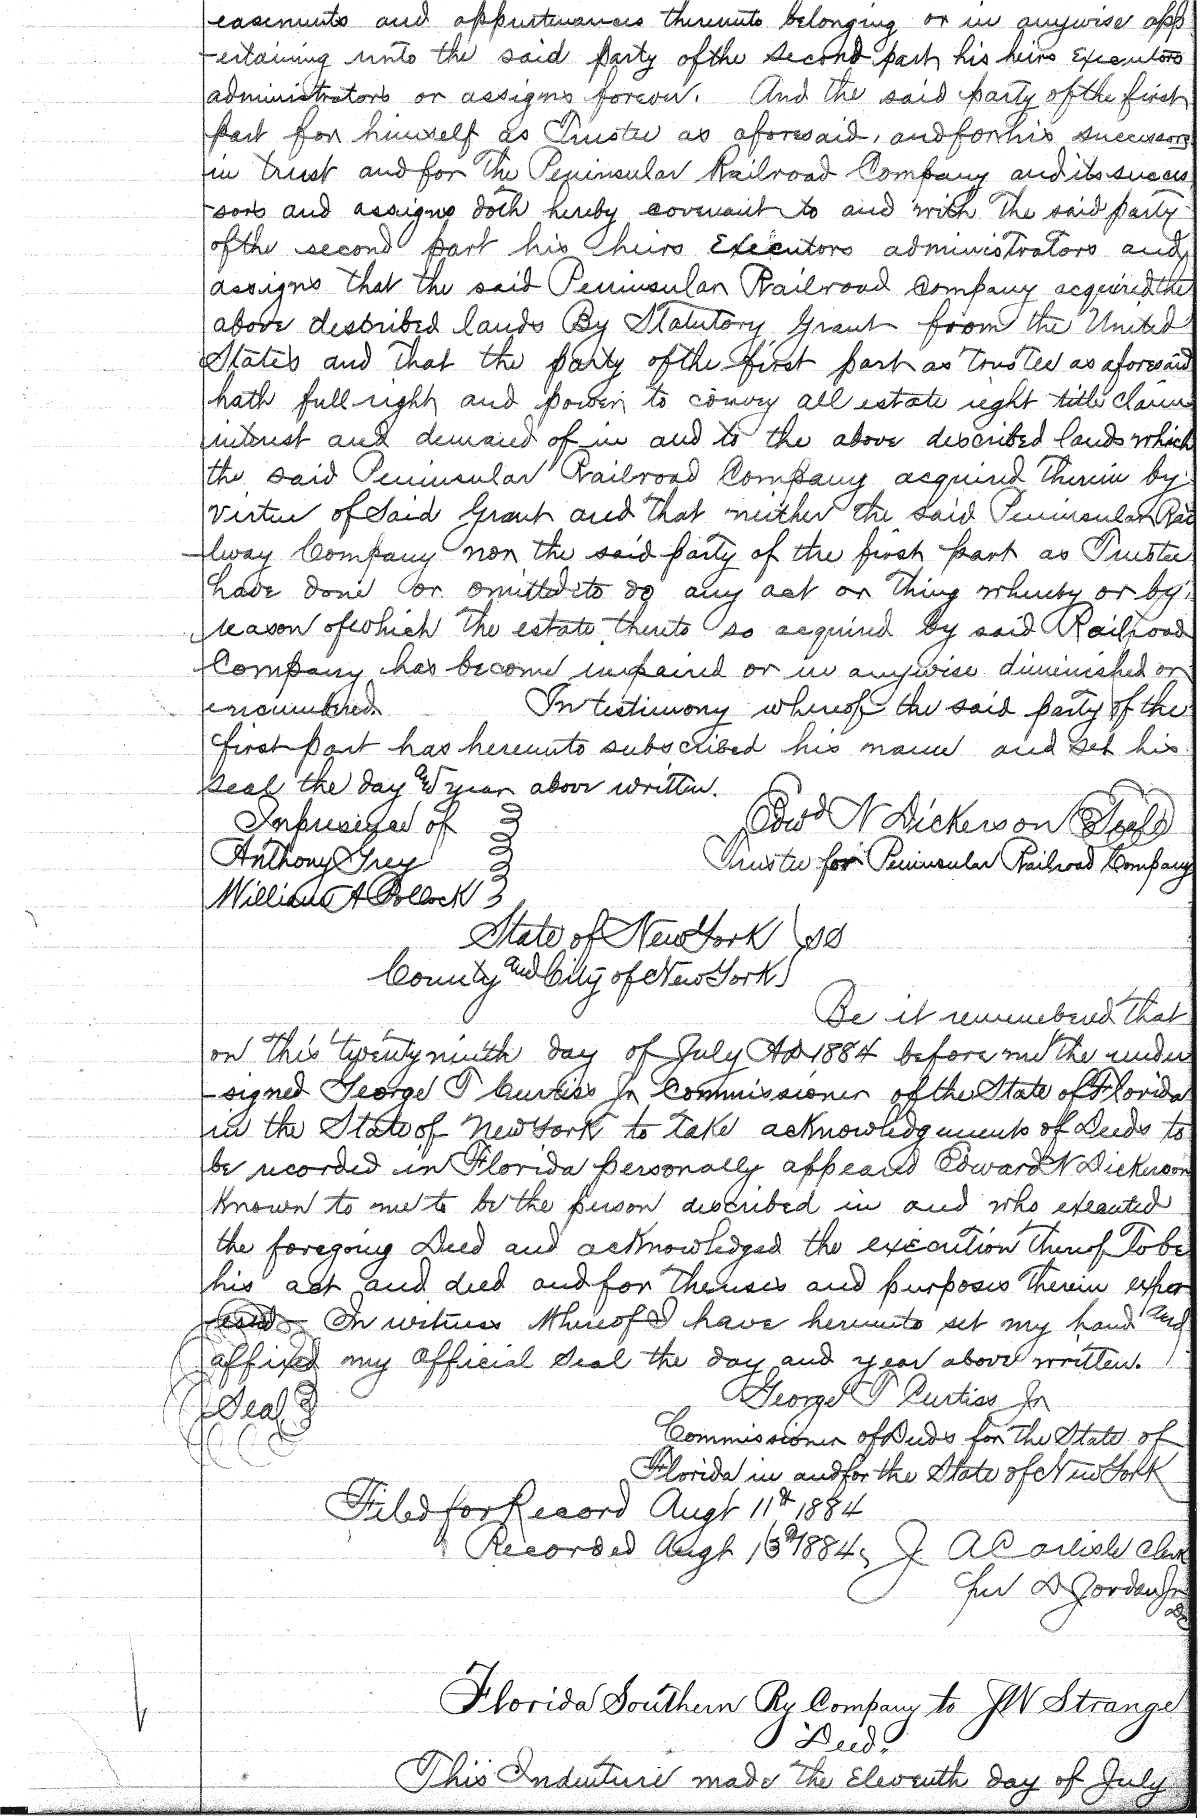 easements and appurtenances thereunto belonging or in anywise app
-ertaining unto the said party of the second part, his heirs Executors
administrators or assigns forever. And the said party of the first
part for himself as Trustee as aforesaid, and for his successors
in trust and for the Peninsular Railroad Company and its succes
-sors and assigns doth hereby covenant to and with the said party
of the second part his heirs Executors administrators and
assigns that the said Peninsular Railroad Company acquired the
above described lands By Statutory Grant from the United
States and that the party of the first part as trustee as aforesaid
hath full right and power to convey all estate right title claim
interest and demand of in and to the above described lands which
the said Peninsular Railroad Company acquired therein by
virtue of Said Grant and that neither the said Peninsular Rai
-lway Company nor the said party of the first part as Trustee
have done or omitted to do any act or thing whereby or by
reason of which the estate thereto so acquired by said Railroad
Company has become impaired or in anywise diminished or
encumbered. In testimony whereof the said party of the
first part has hereunto subscribed his name and set his
seal the day and year above written.
In presence of Edwd N Dickerson Seal
Anthony Grey Trustee for Peninsular Railroad Company
William A Pollock
State of New York ss
County and City of New York
Be it remembered that
on this twenty ninth day of July AD 1884 before me the under
-signed George T Curtiss Jr Commissioner of the State of Florida
in the State of New York to take acknowledgements of Deeds to
be recorded in Florida personally appeared Edward N Dickerson
known to me to be the person described in and who executed
the foregoing Deed and acknowledged the execution thereof to be
his act and deed and for the uses and purposes therein expr
-essed In witness Whereof I have hereunto set my hand and
affixed my official Seal the day and year above written.
Seal George T Curtiss Jr
Commissioner of Deeds for the State of
Florida in and for the State of New York
Filed for Record Augt 11th 1884
Recorded Augt 13th 1884, J A Carlisle Clerk
per D Jordan Jr
DC
Florida Southern Ry Company to JW Strange
Deed.
This Indenture made the Eleventh day of July